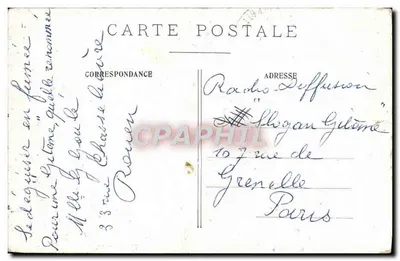 CARTE POSTALE
CORRESPONDANCE
ADRESSE
Se déguiser en fumée
Pour une gitane, quelle renommée
Mlle G Goulé
33 rue Chasselièvre
Rouen
Radio Diffusion
"Slogan Gitane"
107 rue de
Grenelle
Paris
CPAPHIL